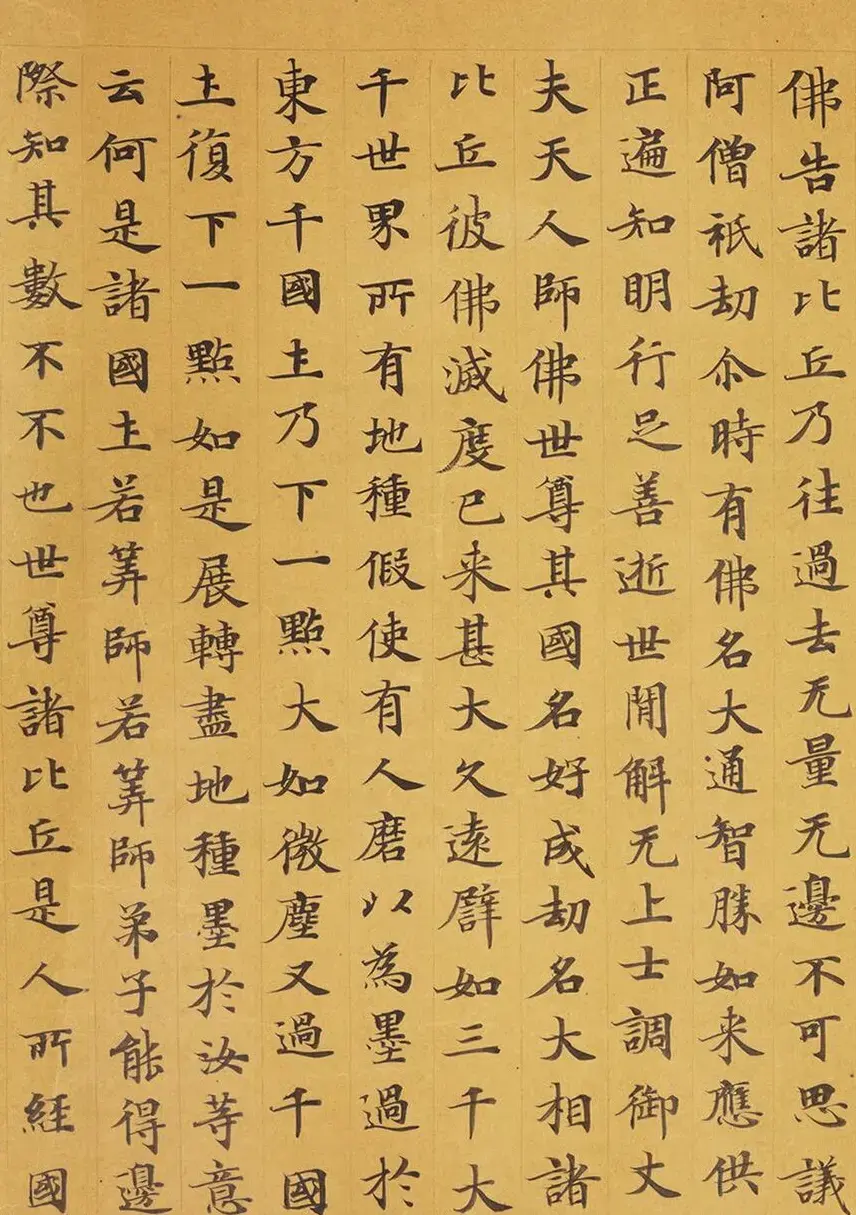 佛告諸比丘乃往過去无量无邊不可思議
阿僧祇劫尒時有佛名大通智勝如来應供
正遍知明行足善逝世閒解无上士調御丈
夫天人師佛世尊其國名好成劫名大相諸
比丘彼佛滅度已来甚大久遠譬如三千大
千世界所有地種假使有人磨以為墨過於
東方千國土乃下一點大如微塵又過千國
土復下一點如是展轉盡地種墨於汝等意
云何是諸國土若筭師若筭師弟子能得邊
際知其數不不也世尊諸比丘是人所經國